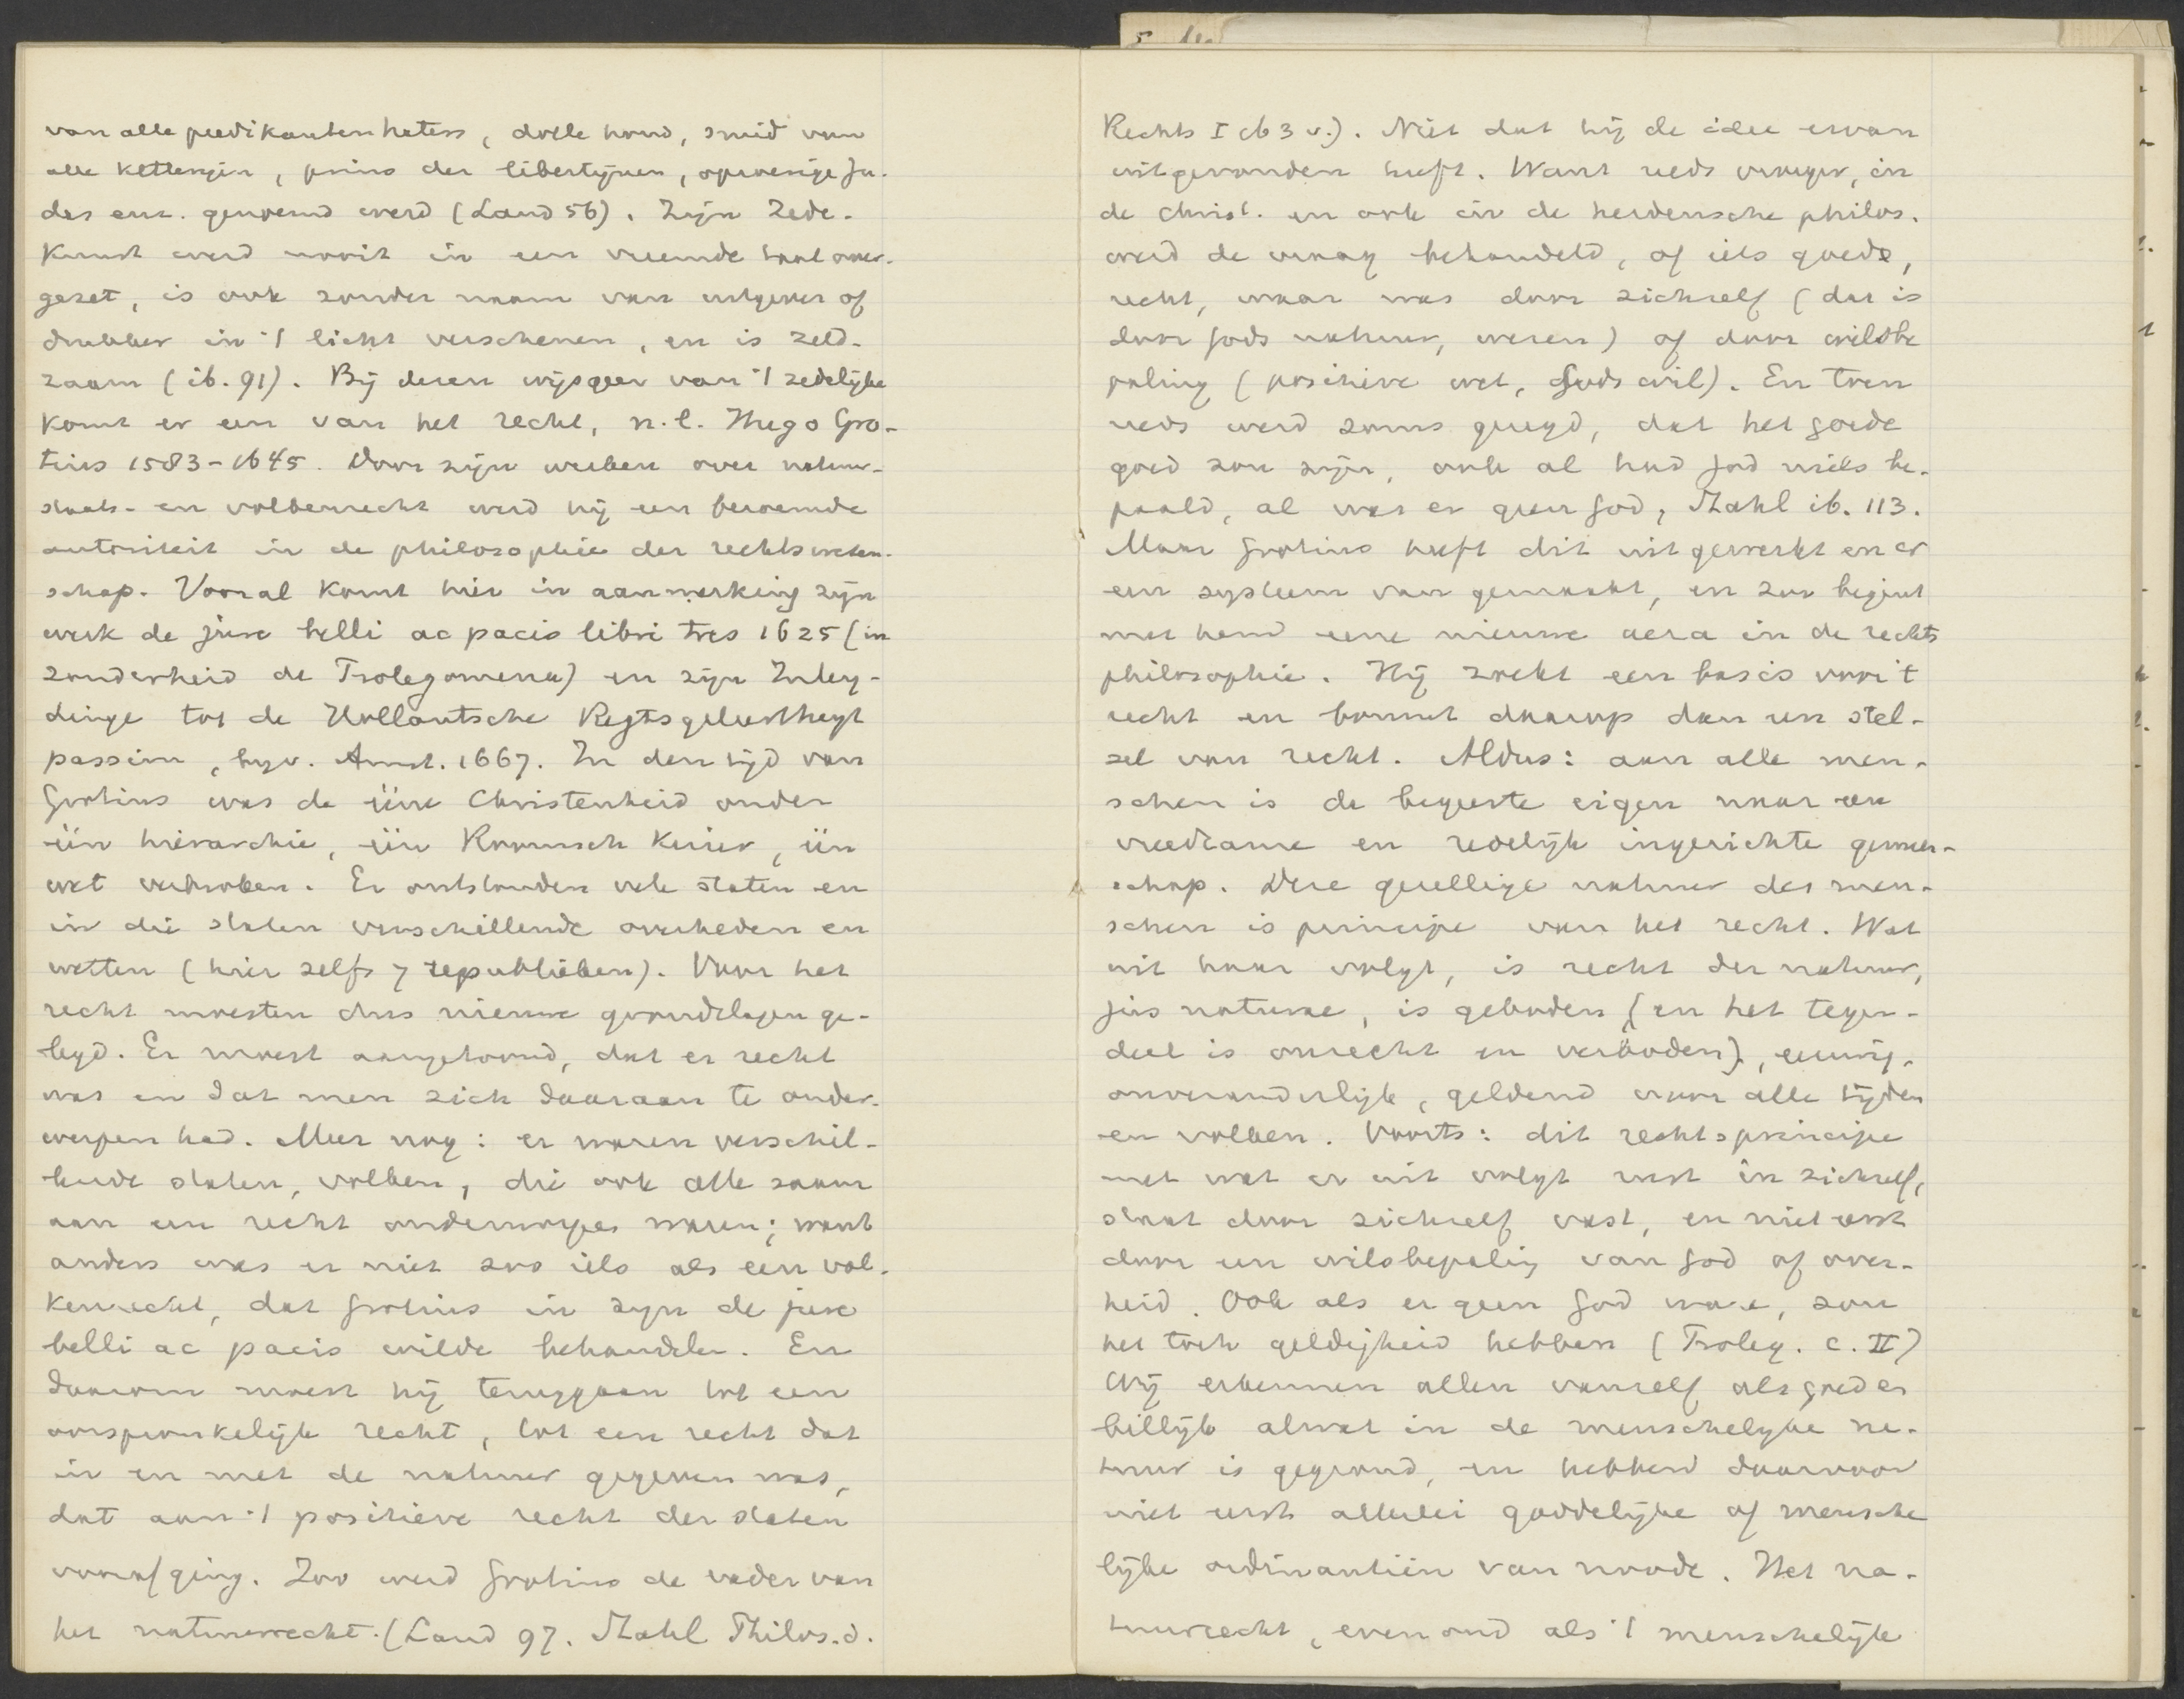 van alle predikantenhaters, dolle hond, smid van
alle ketterijen, prins der libertijnen, oproerige Ju-
das enz. genoemd werd (Land 56). Zijn Zede-
kunst werd nooit in een vreemde taal over-
gezet, is ook zonder naam van uitgever of
drukker in 't licht verschenen, en is zeld-
zaam (ib. 91). Bij dezen wijsgeer van 't zedelijke
komt er een van het recht, n.l. Hugo Gro-
tius 1583-1645. Door zijn werken over natuur-
staats- en volkenrecht werd hij een beroemde
autoriteit in de philosophie der rechtsweten-
schap. Vooral komt hier in aanmerking zijn
werk de jure belli ac pacis libri tres 1625 (in
zonderheid de Prolegomena) en zijn Inley-
dinge tot de Hollantsche Regtsgeleertheyt
passim, bijv. Amst. 1667. In den tijd van
Grotius was de ééne Christenheid onder
één hiërarchie, één Roomsch Keizer, één
wet verbroken. Er ontstonden vele staten en
in die staten verschillende overheden en
wetten (hier zelfs 7 republieken). Voor het
recht moesten dus nieuwe grondslagen ge-
legd. Er moest aangetoond, dat er recht
was en dat men zich daaraan te onder-
werpen had. Meer nog: er waren verschil-
lende staten, volken, die ook alle saam
aan een recht onderworpen waren; want
anders was er niet zoo iets als een vol-
kenrecht, dat Grotius in zijn de jure
belli ac pacis wilde behandelen. En
daarom moest hij teruggaan tot een
oorspronkelijk recht, tot een recht dat
in en met de natuur gegeven was,
dat aan 't positieve recht der staten
voorafging. Zoo werd Grotius de vader van
het natuurrecht. (Land 97. Stahl Philos. d.
Rechts I 163 v.). Niet dat hij de idee ervan
uitgevonden heeft. Want reeds vroeger, in
de christ. en ook in de heidensche philos.
werd de vraag behandeld, of iets goeds,
recht, waar was door zichzelf (dat is
door Gods natuur, wezen) of door wilsbe
paling (positieve wet, Gods wil). En toen
reeds werd soms gezegd, dat het goede
goed zou zijn, ook al had God niets be-
paald, al was er geen God, Stahl ib. 113.
Maar Grotius heeft dit uitgewerkt en er
een systeem van gemaakt, en zoo begint
met hem eene nieuwe aera in de rechts
philosophie. Hij zoekt een basis voor 't
recht en bouwt daarop dan een stel-
sel van recht. Aldus: aan alle men-
schen is de begeerte eigen naar een
vreedzame en redelijk ingerichte gemeen-
schap. Deze gezellige natuur des men-
schen is principe van het recht. Wat
uit haar volgt, is recht der natuur,
jus naturae, is geboden (en het tegen-
deel is onrecht en verboden), eeuwig,
onveranderlijk, geldend voor alle tijden
en volken. Voorts: dit rechtsprincipe
met wat er uit volgt rust in zichzelf,
staat door zichzelf vast, en niet eerst
door een wilsbepaling van God of over-
heid. Ook als er geen God ware, zou
het toch geldigheid hebben (Proleg. c. II)
Wij erkennen allen vanzelf als goed en
billijk alwat in de menschelijke na-
tuur is gegrond, en hebben daarvoor
niet eerst allerlei goddelijke of mensche
lijke ordinantiën van noode. Het na-
tuurrecht, even oud als 't menschelijk